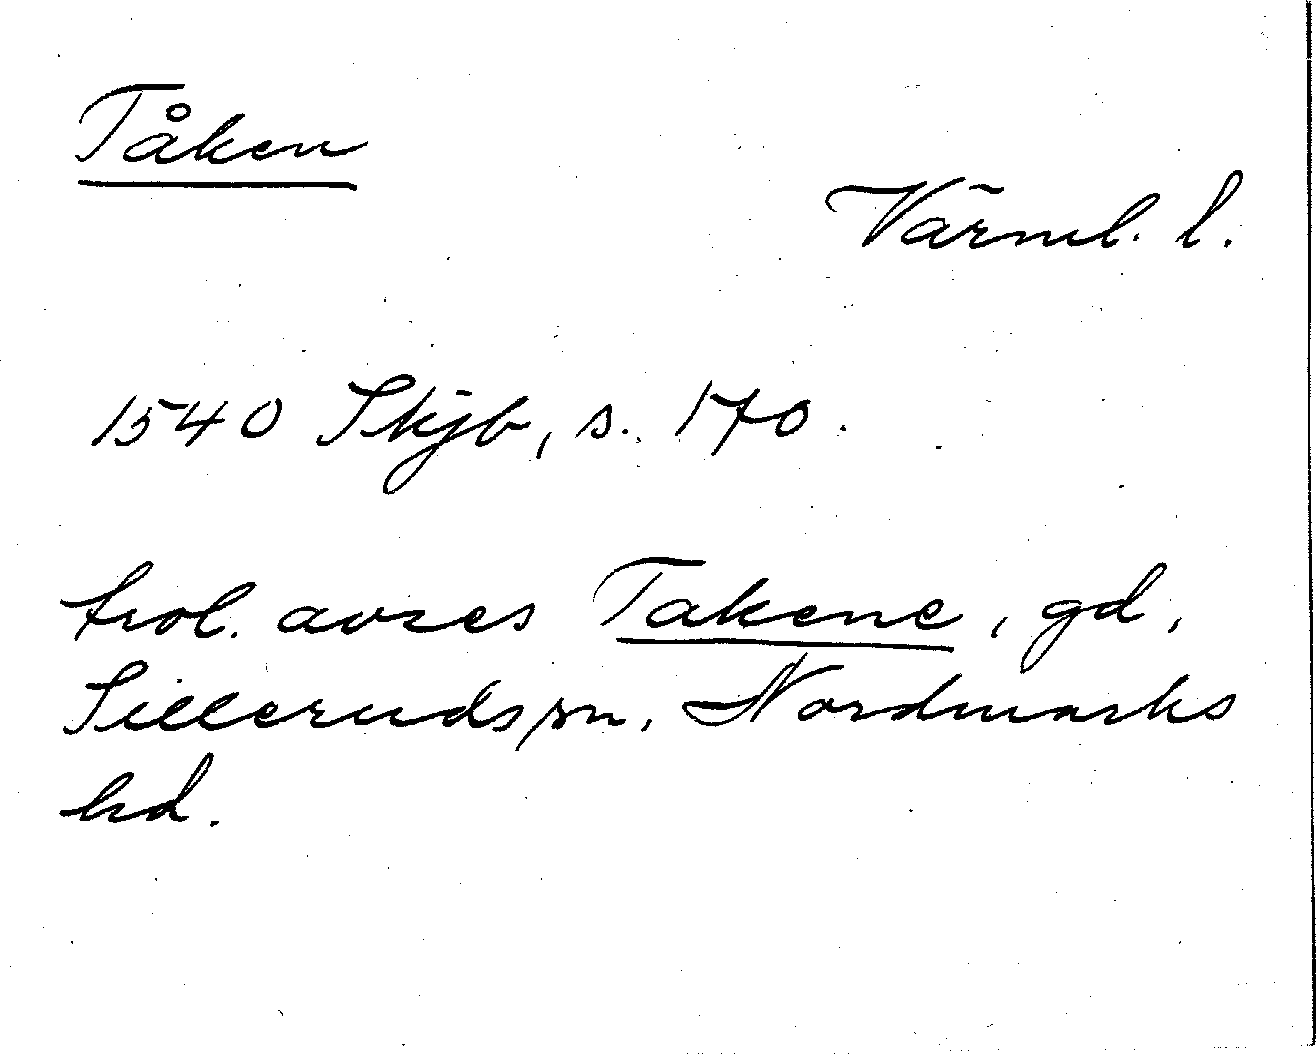 Tåken
Värml. l.
1540 Skjb, s. 170.
trol. avses Takene, gd,
Sillerudssn, Nordmarks
hd.